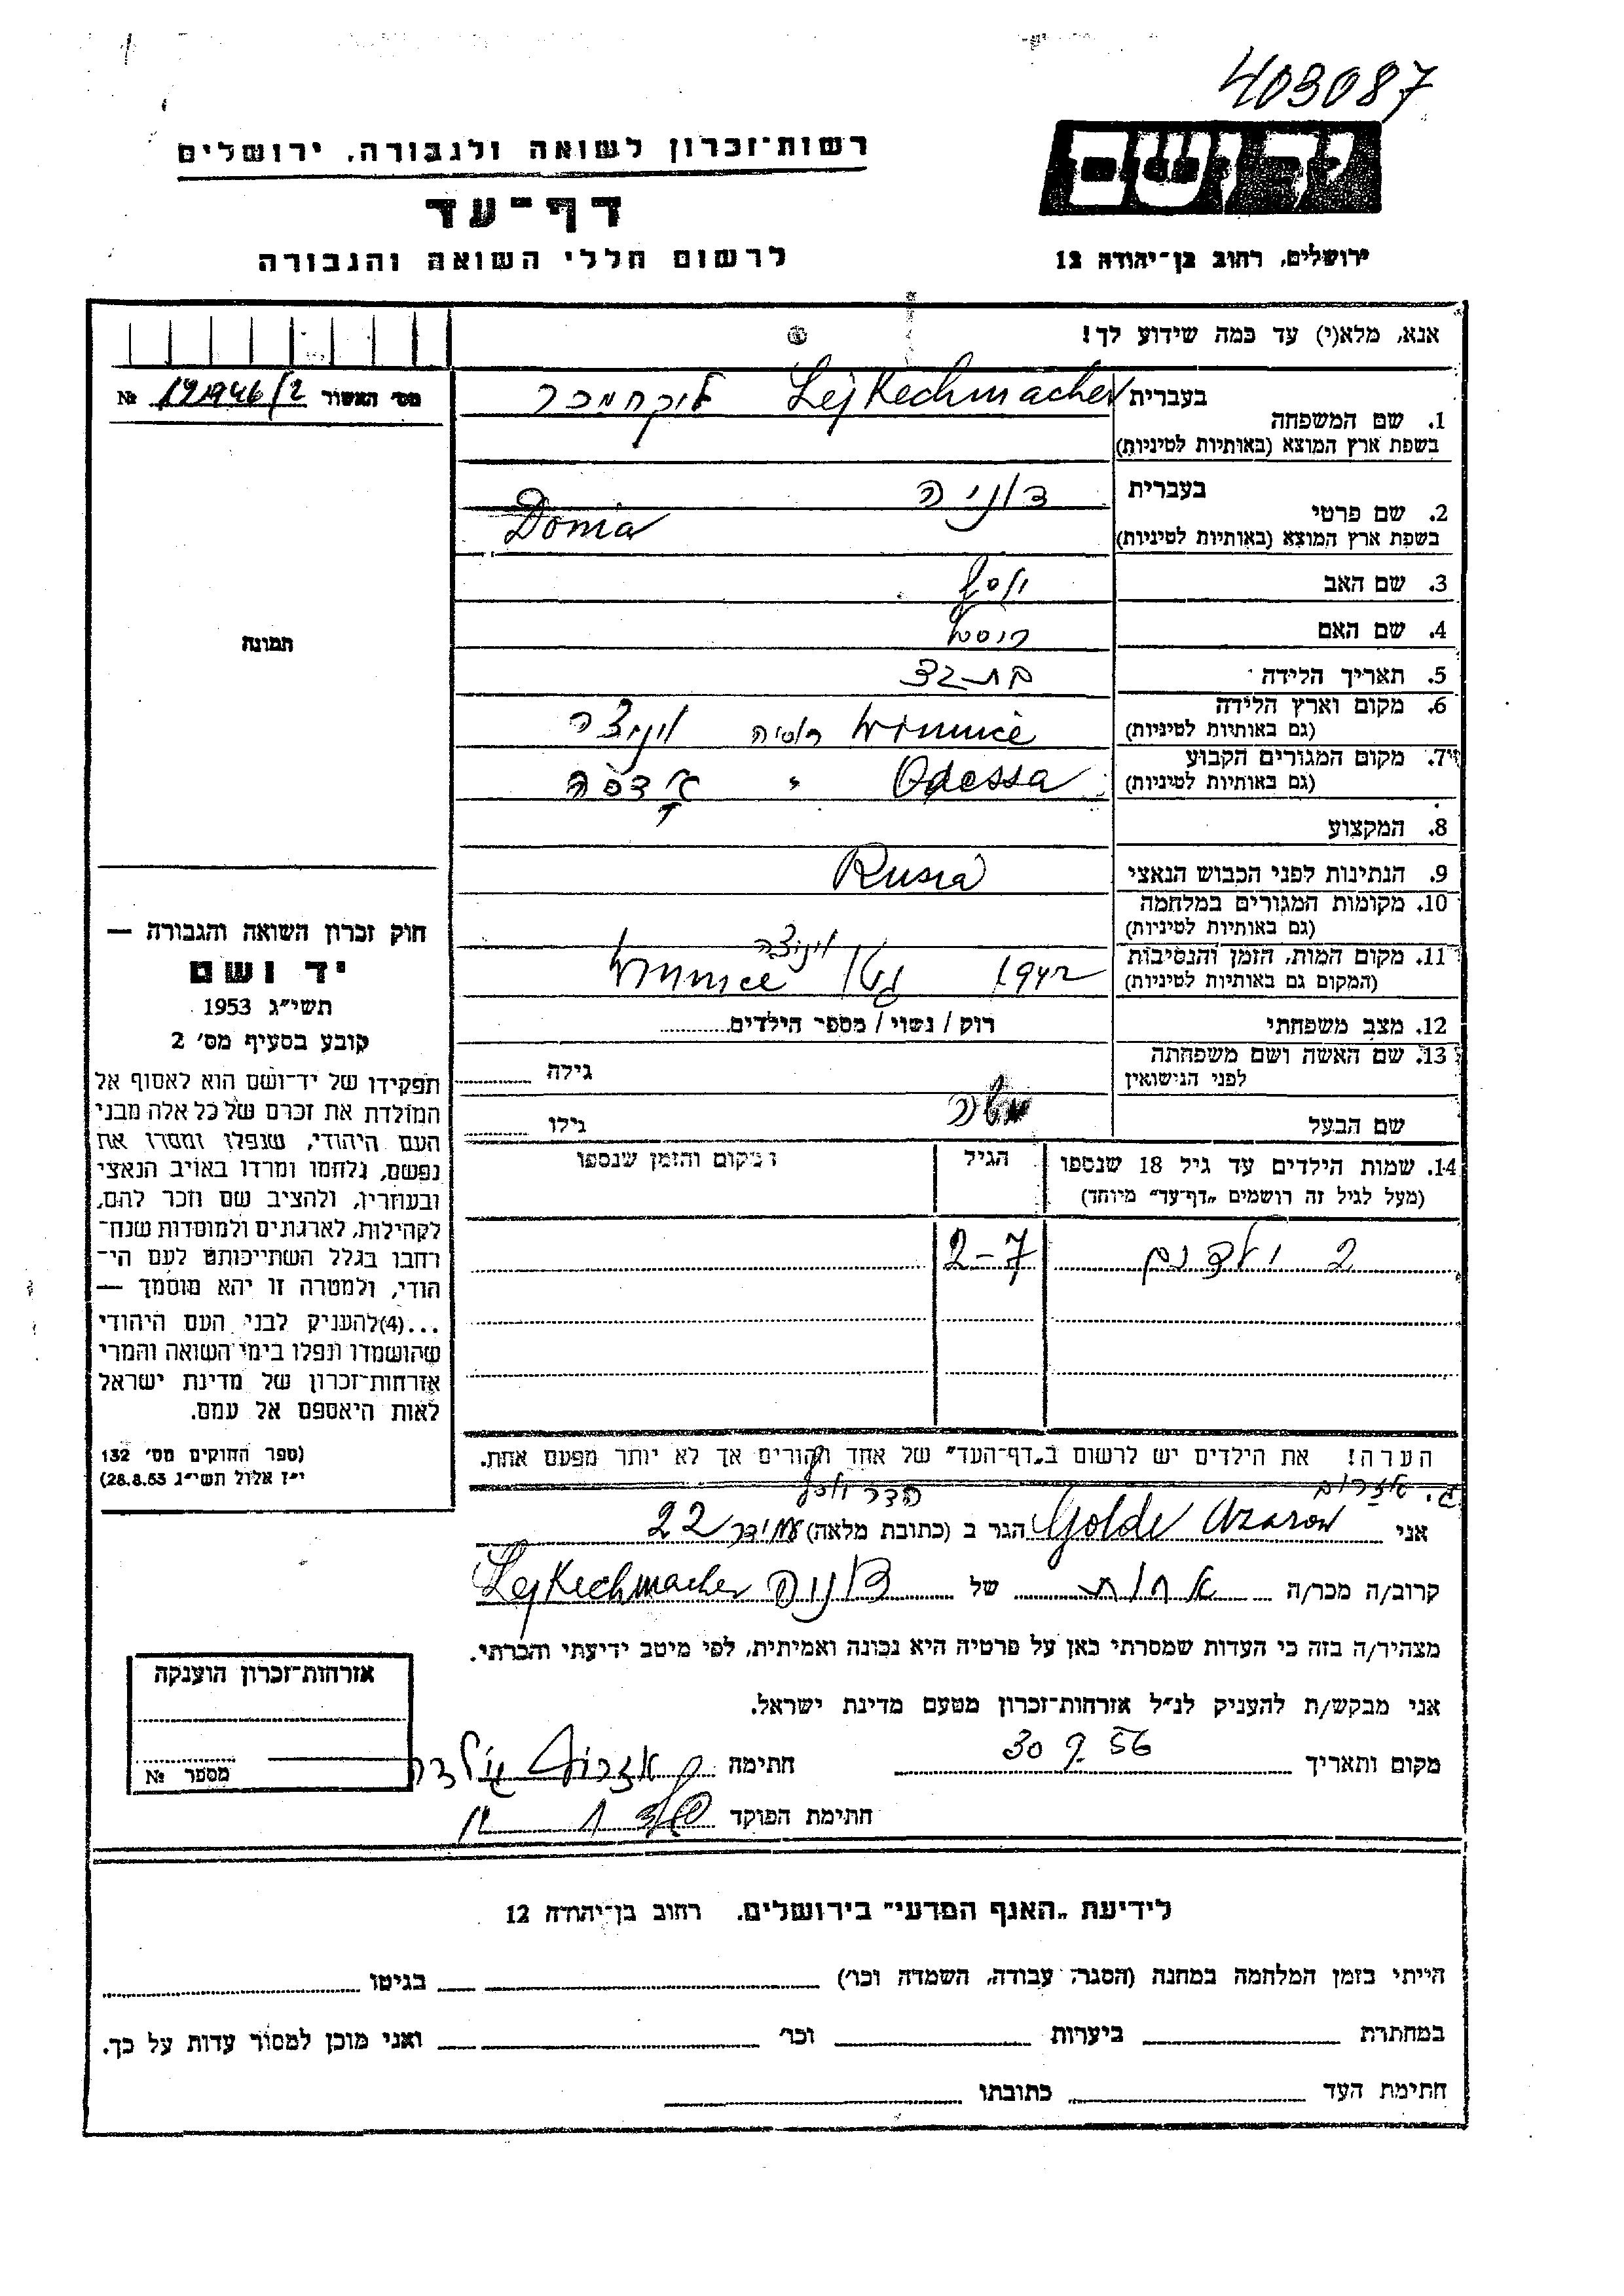 403087
יד ושם
רשות־זכרון לשואה ולגבורה, ירושלים
דף־עד
לרשום חללי השואה והגבורה
ירושלים, רחוב בן־יהודה 12
אנא, מלא(י) עד כמה שידוע לך!
מס' האשור № 121946/2
1. שם המשפחה
בעברית Lejkechmacher ליקחמכר
בשפת ארץ המוצא (באותיות לטיניות)
2. שם פרטי
בעברית דוניה
בשפת ארץ המוצא (באותיות לטיניות) Donia
3. שם האב יוסף
4. שם האם
5. תאריך הלידה בת
6. מקום וארץ הלידה
(גם באותיות לטיניות) Winnice רוסיה ויניצה
7. מקום המגורים הקבוע
(גם באותיות לטיניות) Odessa " אודסה
8. המקצוע
9. הנתינות לפני הכבוש הנאצי Rusia
10. מקומות המגורים במלחמה
(גם באותיות לטיניות)
11. מקום המות, הזמן והנסיבות
(המקום גם באותיות לטיניות) 1942 גטו ויניצה Winnice
12. מצב משפחתי רוק / נשוי / מספר הילדים
13. שם האשה ושם משפחתה
לפני הנישואין גילה
שם הבעל משה גילו
14. שמות הילדים עד גיל 18 שנספו
(מעל לגיל זה רושמים „דף־עד" מיוחד)
הגיל
המקום והזמן שנספו
2 ילדים 2-7
הערה! את הילדים יש לרשום ב„דף־העד" של אחד ההורים אך לא יותר מפעם אחת.
ג. אזרוב
הדר יוסף
אני Golde Azarow הגר ב (כתובת מלאה) עמידר 22
קרוב/ה מכר/ה אחות של דוניה Lejkechmacher
מצהיר/ה בזה כי העדות שמסרתי כאן על פרטיה היא נכונה ואמיתית, לפי מיטב ידיעתי והכרתי.
אני מבקש/ת להעניק לנ״ל אזרחות־זכרון מטעם מדינת ישראל.
מקום ותאריך 30 9 56 חתימה אזרוב גולדה
חתימת הפוקד
תמונה
חוק זכרון השואה והגבורה —
יד ושם
תשי״ג 1953
קובע בסעיף מס' 2
תפקידו של יד־ושם הוא לאסוף אל
המולדת את זכרם של כל אלה מבני
העם היהודי, שנפלו ומסרו את
נפשם, נלחמו ומרדו באויב הנאצי
ובעוזריו, ולהציב שם וזכר להם,
לקהילות, לארגונים ולמוסדות שנח־
רחבו בגלל השתייכותם לעם הי־
הודי, ולמטרה זו יהא מוסמך —
...(4)להעניק לבני העם היהודי
שהושמדו ונפלו בימי השואה והמרי
אזרחות־זכרון של מדינת ישראל
לאות היאספם אל עמם.
(ספר החוקים מס' 132
י״ז אלול תשי״ג 28.8.53)
אזרחות־זכרון הוענקה
מספר №
לידיעת „האגף המדעי" בירושלים. רחוב בן־יהודה 12
הייתי בזמן המלחמה במחנה (הסגר, עבודה, השמדה וכו') בגיטו
במחתרת ביערות וכו' ואני מוכן למסור עדות על כך.
חתימת העד כתובתו